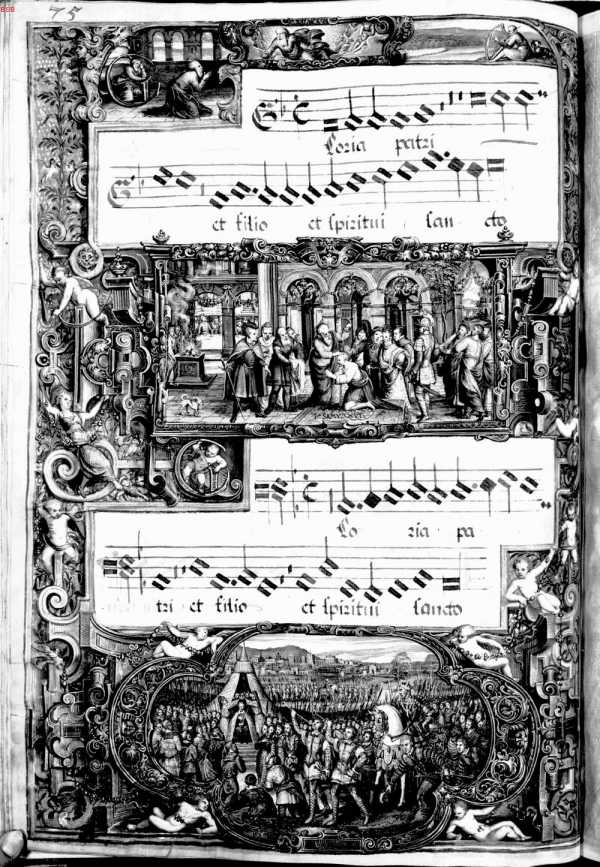 75
BSB
loria patri
et filio et spiritui san cto
lo ria pa
tri et filio et spiritui sancto